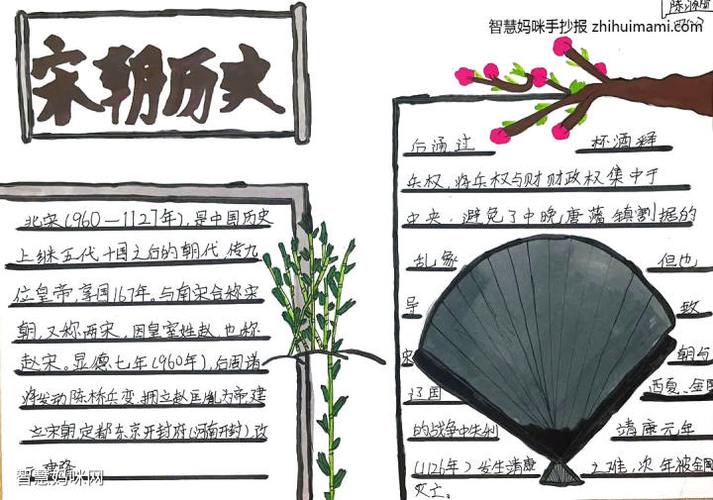 智慧妈咪手抄报 zhihuimami.com
宋朝历史
北宋(960—1127年),是中国历史
上继五代十国之后的朝代,传九
位皇帝,享国167年。与南宋合称宋
朝,又称两宋,因皇室姓赵,也称
赵宋。显德七年(960年),后周诸
将发动陈桥兵变,拥立赵匡胤为帝,建
立宋朝,定都东京开封府(河南开封),改
后通过 杯酒释
兵权,将兵权与财财政权集中于
中央,避免了中晚唐藩镇割据的
乱象 但也
导 致
宋 朝与
辽国 西夏、金国
的战争中失利 靖康元年
(1126年)发生靖康 之难,次年被金国
灭亡。
智慧妈咪网